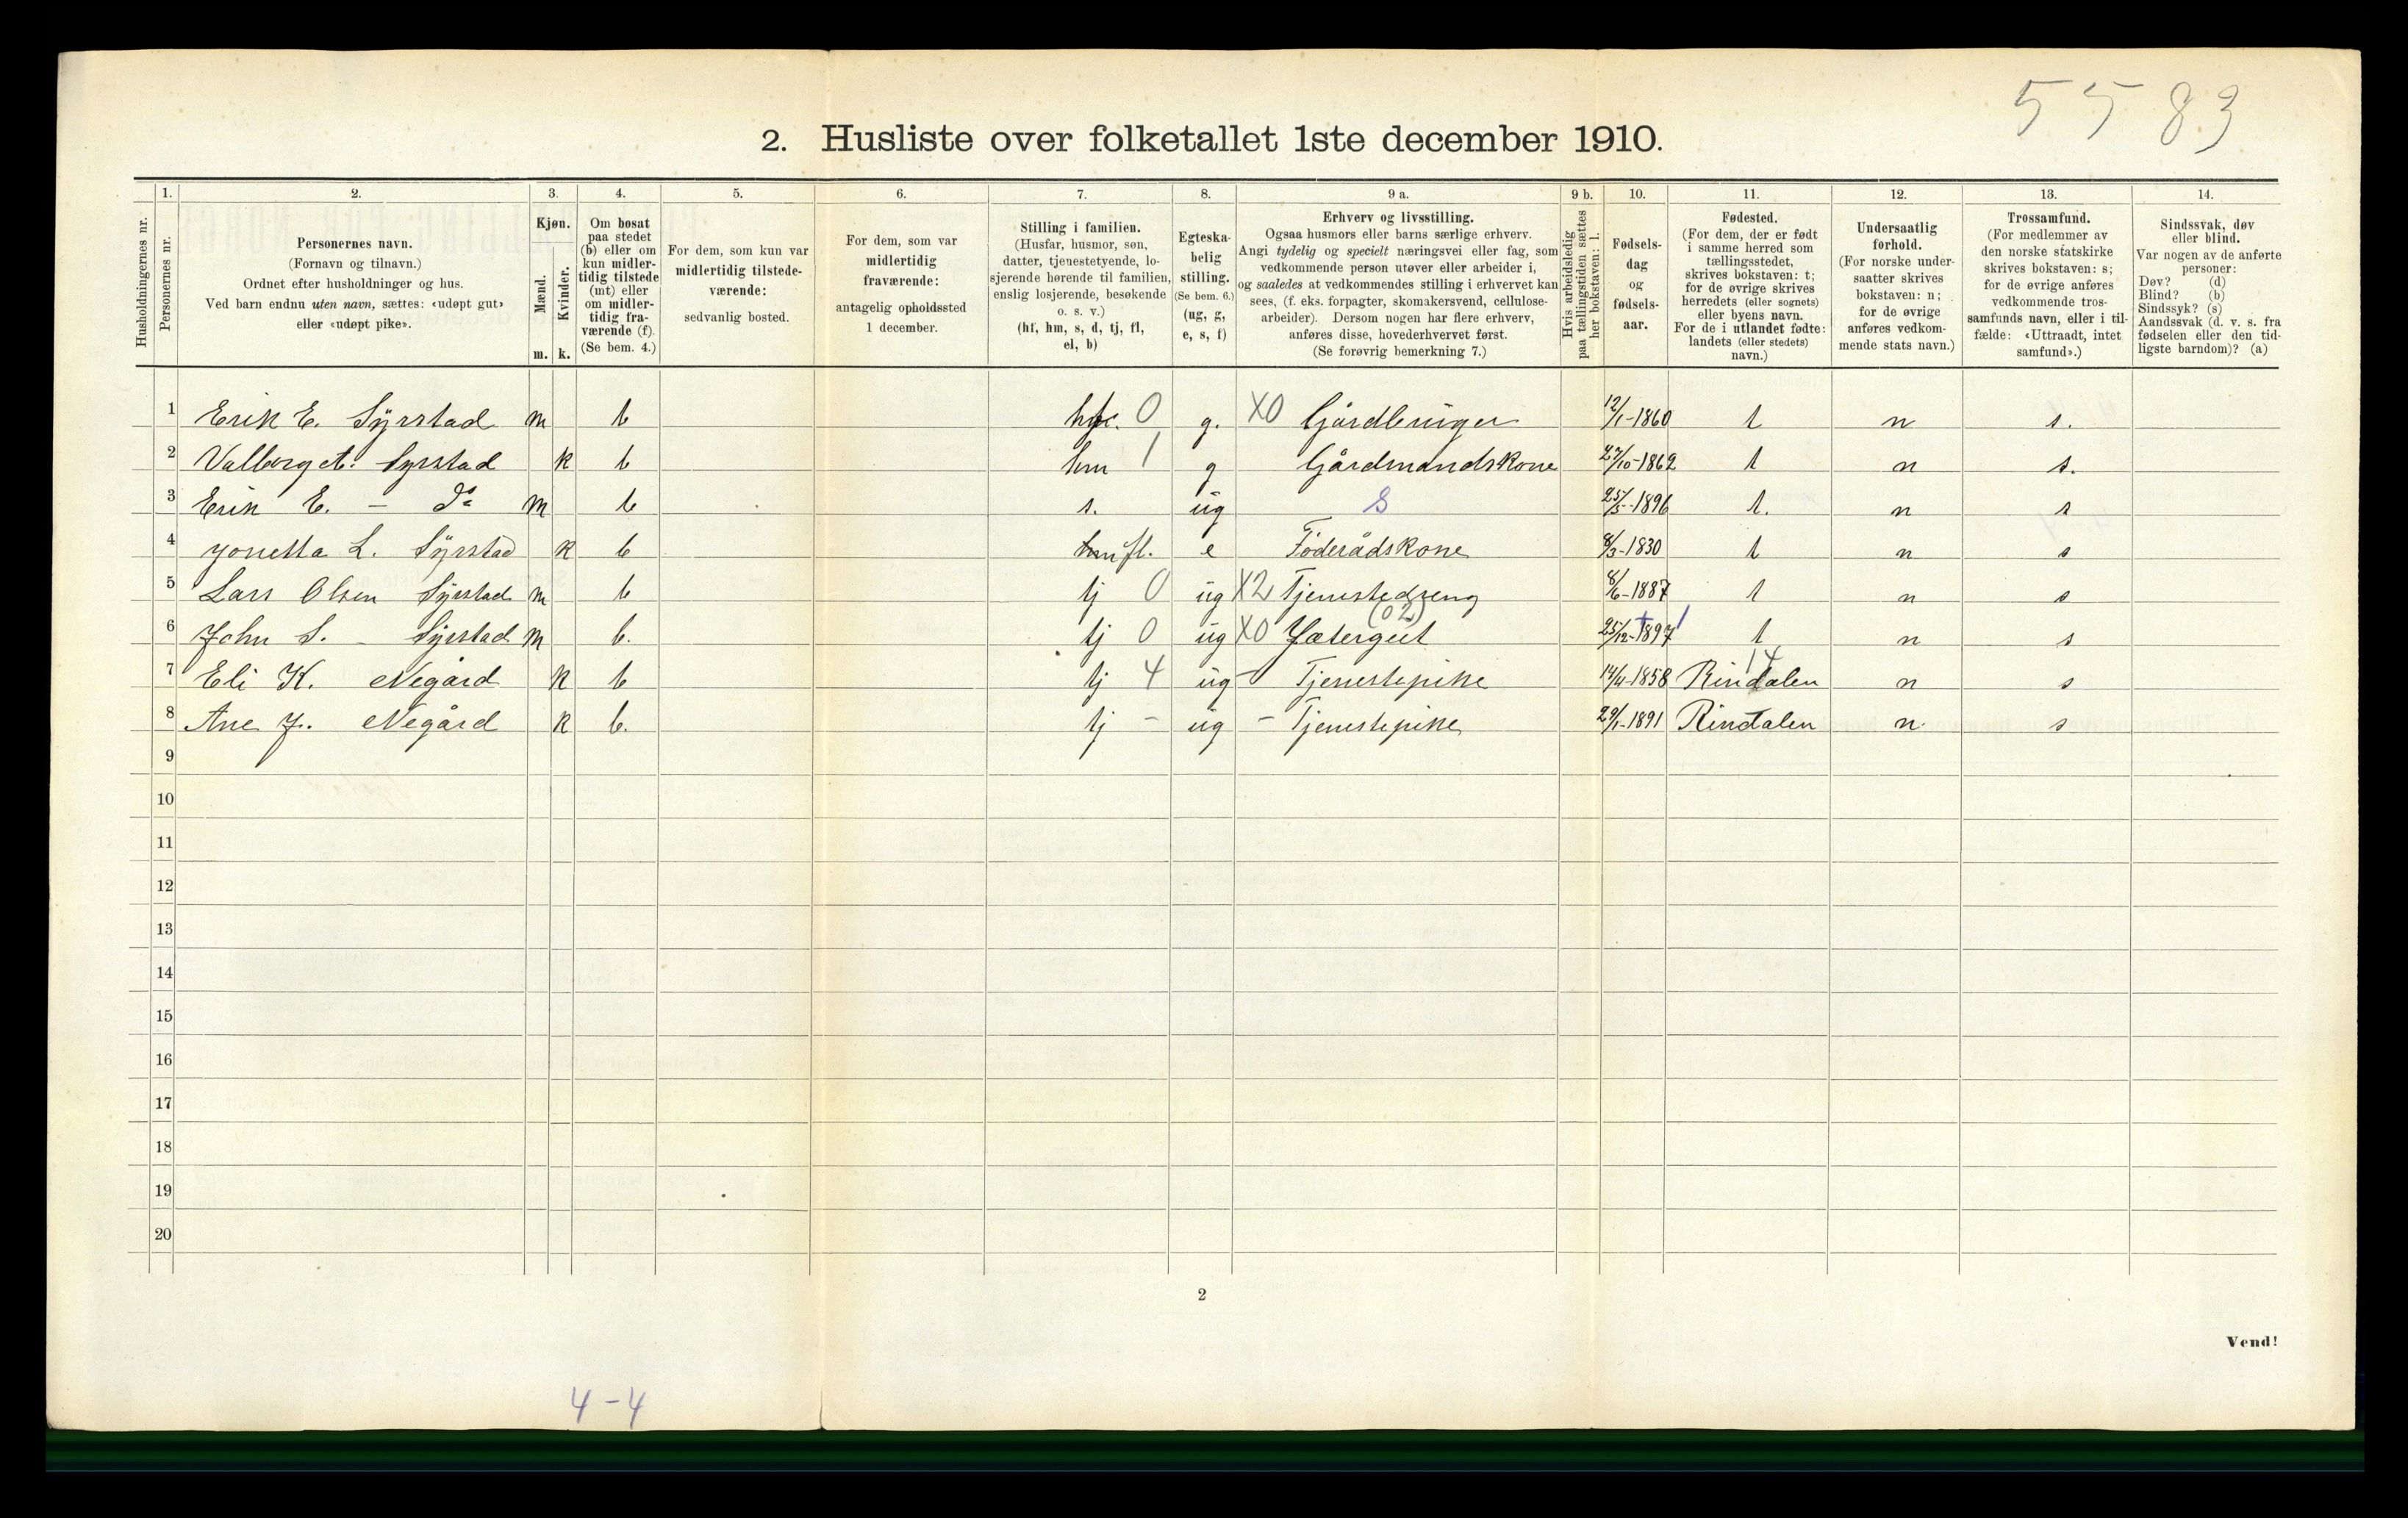 5583
2. Husliste over folketallet 1ste december 1910.
Husholdningernes nr.
1. Personernes nr.
2. Personernes navn.
(Fornavn og tilnavn.)
Ordnet efter husholdninger og hus.
Ved barn endnu uten navn, sættes: «udøpt gut»
eller «udøpt pike».
3. Kjøn.
Mænd. m.
Kvinder. k.
4. Om bosat
paa stedet
(b) eller om
kun midler-
tidig tilstede
(mt) eller
om midler-
tidig fra-
værende (f).
(Se bem. 4.)
5. For dem, som kun var
midlertidig tilstede-
værende:
sedvanlig bosted.
6. For dem, som var
midlertidig
fraværende:
antagelig opholdssted
1 december.
7. Stilling i familien.
(Husfar, husmor, søn,
datter, tjenestetyende, lo-
sjerende hørende til familien,
enslig losjerende, besøkende
o. s. v.)
(hf, hm, s, d, tj, fl,
el, b)
8. Egteska-
belig
stilling.
(Se bem. 6.)
(ug, g,
e, s, f)
9 a. Erhverv og livsstilling.
Ogsaa husmors eller barns særlige erhverv.
Angi tydelig og specielt næringsvei eller fag, som
vedkommende person utøver eller arbeider i,
og saaledes at vedkommendes stilling i erhvervet kan
sees, (f. eks. forpagter, skomakersvend, cellulose-
arbeider). Dersom nogen har flere erhverv,
anføres disse, hovederhvervet først.
(Se forøvrig bemerkning 7.)
9 b. Hvis arbeidsledig
paa tællingstiden sættes
her bokstaven: l.
10. Fødsels-
dag
og
fødsels-
aar.
11. Fødested.
(For dem, der er født
i samme herred som
tællingsstedet,
skrives bokstaven: t;
for de øvrige skrives
herredets (eller sognets)
eller byens navn.
For de i utlandet fødte:
landets (eller stedets)
navn.)
12. Undersaatlig
forhold.
(For norske under-
saatter skrives
bokstaven: n;
for de øvrige
anføres vedkom-
mende stats navn.)
13. Trossamfund.
(For medlemmer av
den norske statskirke
skrives bokstaven: s;
for de øvrige anføres
vedkommende tros-
samfunds navn, eller i til-
fælde: «Uttraadt, intet
samfund».)
14. Sindssvak, døv
eller blind.
Var nogen av de anførte
personer:
Døv? (d)
Blind? (b)
Sindssyk? (s)
Aandssvak (d. v. s. fra
fødselen eller den tid-
ligste barndom)? (a)
1 Erik E. Syrstad m b 0 g. X0 Gårdbruger 12/1-1860 t n s.
2 Syrstad k b hm 1 g Gårdmandskone 27/10-1862 t n s.
3 Erik E. - do m b s. ug S 25/5-1896 t. n s
4 L. Syrstad k b fl. e Føderådskone 8/3-1830 t n s
5 Lars Olsen Syrstad m b tj 0 ug X2 Tjenestedreng 8/6-1887 t n s
6 John S. - Syrstad m b. tj 0 ug X0 Jætergut (02) 25/12-1897 t n s
7 Eli K. Negård k b tj 4 ug - Tjenestepike 14/4-1858 Rindalen 14 n s
8 Ane J. Negård k b. tj - ug - Tjenestepike 29/1-1891 Rindalen n s
9
10
11
12
13
14
15
16
17
18
19
20
2
Vend!
4-4